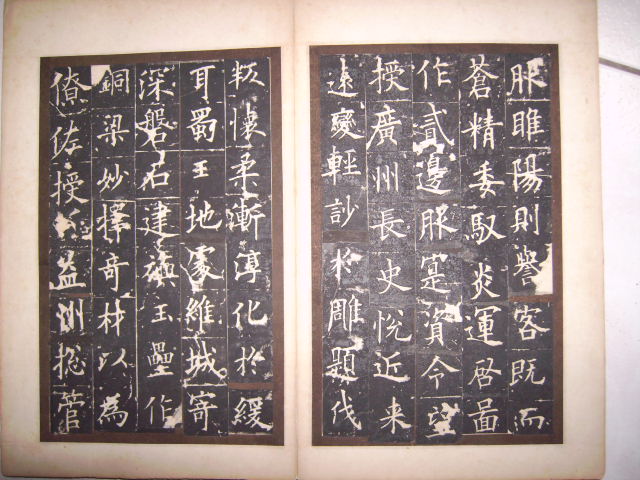 服睢陽則譽客既而
蒼精委馭炎運啓啚
作貳邊服寔資令望
授廣州長史悅近来
遠變輕訬於雕題伐
叛懷柔漸淳化於緩
耳蜀王地處維城寄
深磐石建旟玉壘作
銅梁妙擇奇材以為
僚佐授益州揔管